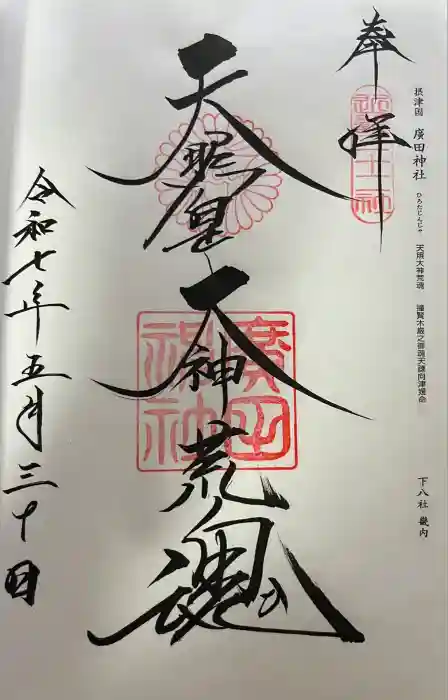 摂津国 廣田神社 ひろたじんじゃ 天照大神荒魂 撞賢木厳之御魂天疎向津媛命
下八社 畿内
奉拝
天照皇大神荒魂
廣田神社
令和七年五月三十日